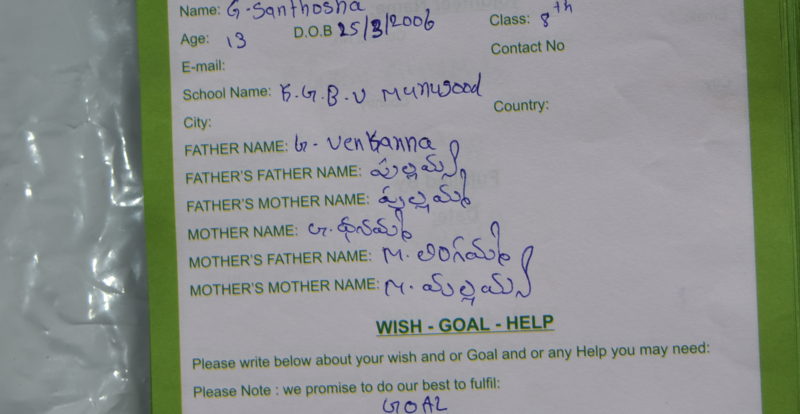 Name: G. Santhosha
Age: 13 D.O.B 25/3/2006 Class: 8th
Contact No
E-mail:
School Name: K.G.B.V Munuwood
Country:
City:
FATHER NAME: G. Venkanna
FATHER'S FATHER NAME:
FATHER'S MOTHER NAME:
MOTHER NAME: G. ధనమ్మ
MOTHER'S FATHER NAME: M. లింగమ్మ
MOTHER'S MOTHER NAME: M. మల్లమ్మ
WISH - GOAL - HELP
Please write below about your wish and or Goal and or any Help you may need:
Please Note : we promise to do our best to fulfil:
GOAL